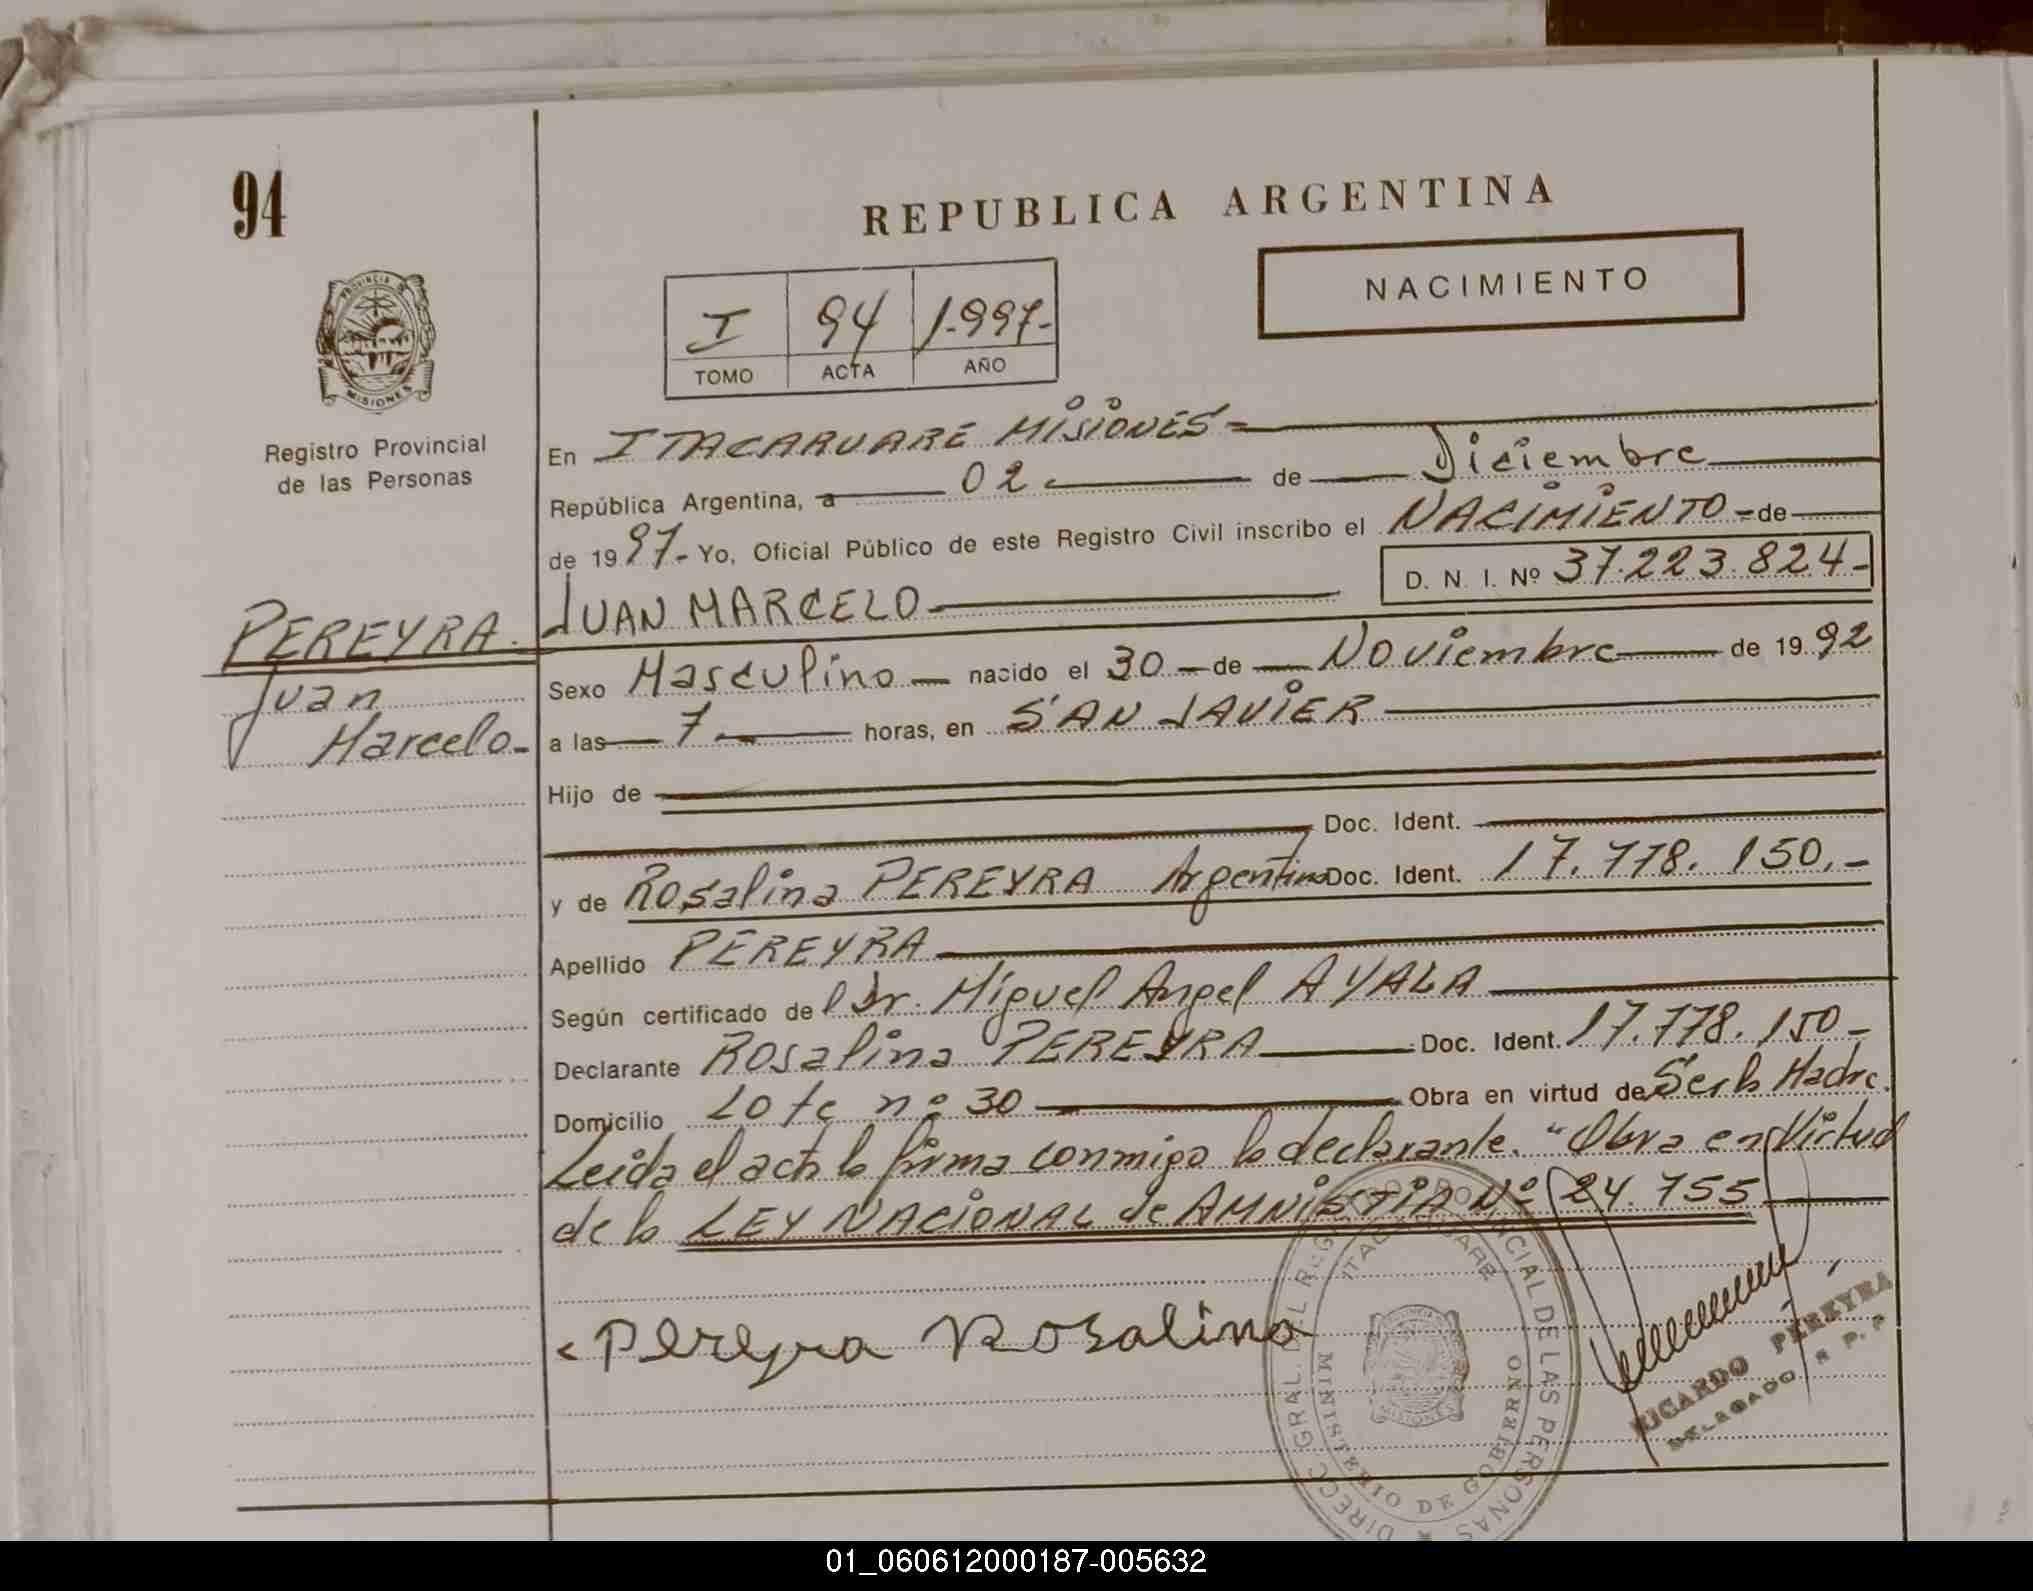 94
REPUBLICA ARGENTINA
NACIMIENTO
I 94 1.997-
TOMO ACTA AÑO
PROVINCIA DE
MISIONES
Registro Provincial
de las Personas
En ITACARUARE MISIONES=
República Argentina, a 02 de Diciembre
de 1997- Yo, Oficial Público de este Registro Civil inscribo el NACIMIENTO - de
D. N. I. Nº 37.223.824-
PEREYRA. JUAN MARCELO
Juan
Marcelo-
Sexo Masculino nacido el 30 de Noviembre de 1992
a las 7 horas, en SAN JAVIER
Hijo de
Doc. Ident.
y de Rosalina PEREYRA Argentina Doc. Ident. 17.778.150.-
Apellido PEREYRA
Según certificado del Dr. Miguel Angel AYALA
Declarante Rosalina PEREYRA Doc. Ident. 17.778.150-
Domicilio Lote nº 30 Obra en virtud de Ser la Madre.
Leida el acta la firma conmigo la declarante. "Obra en Virtud
de la LEY NACIONAL de AMNISTIA Nº 24.755
Pereyra Rosalina
DIRECC. GRAL. DEL REGISTRO PROVINCIAL DE LAS PERSONAS
ITACARUARE
MINISTERIO DE GOBIERNO
MISIONES
RICARDO PEREYRA
DELAGADO R P. P
01_060612000187-005632